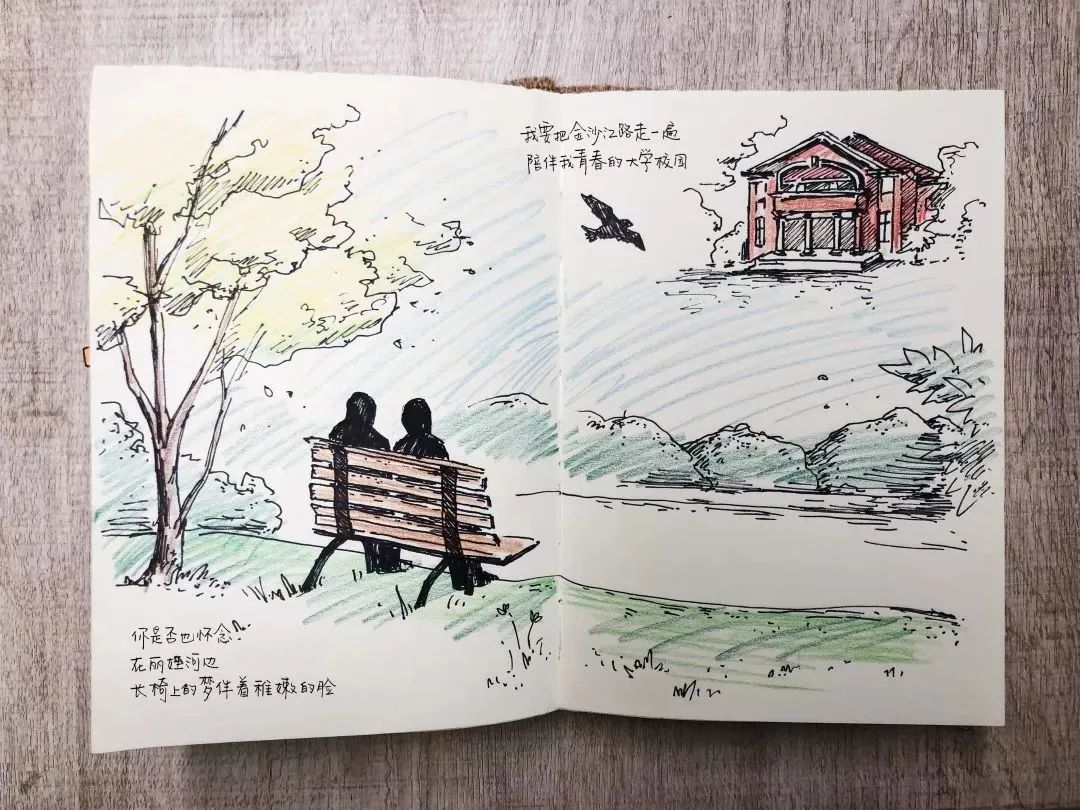 我要把金沙江路走一遍
陪伴我青春的大学校园
你是否也怀念
在丽娃河边
长椅上的梦伴着稚嫩的脸